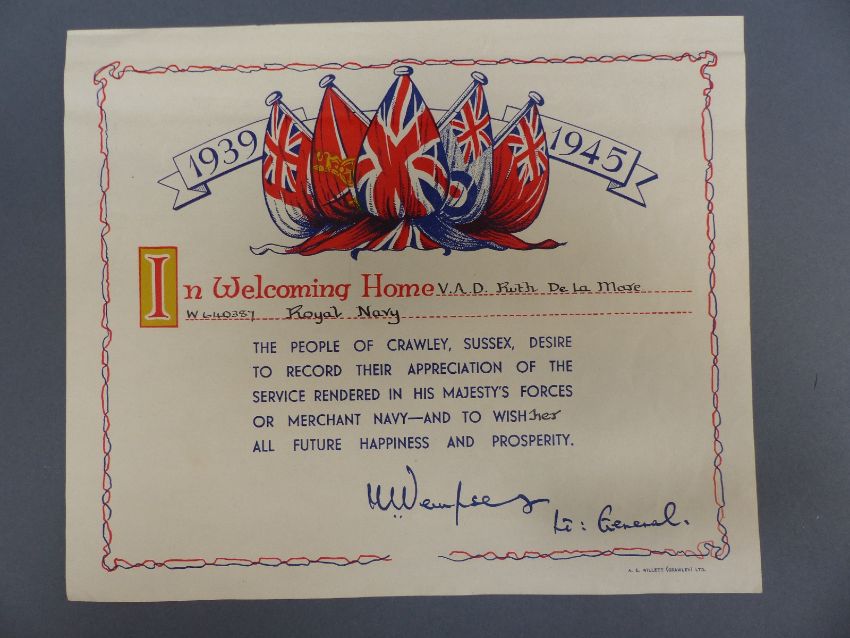 1939 1945
In Welcoming Home V.A.D. Ruth De La Mare
W 640387 Royal Navy
THE PEOPLE OF CRAWLEY, SUSSEX, DESIRE
TO RECORD THEIR APPRECIATION OF THE
SERVICE RENDERED IN HIS MAJESTY'S FORCES
OR MERCHANT NAVY—AND TO WISH her
ALL FUTURE HAPPINESS AND PROSPERITY.
Dempsey
Lt: General.
A. E. WILLETT (CRAWLEY) LTD.